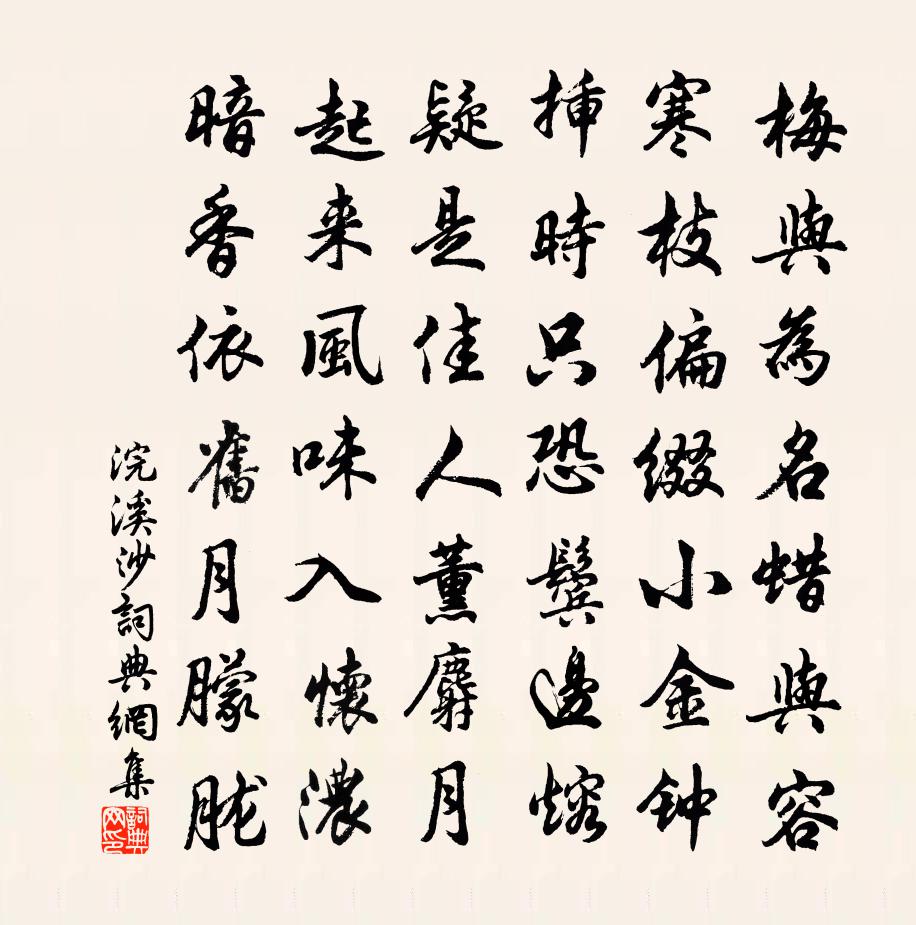 梅與為名蜡與容
寒枝偏綴小金钟
揷時只恐鬓邊熔
疑是佳人薰麝月
起来風味入懷濃
暗香依舊月朦胧
浣溪沙詞典網集
詞典网印